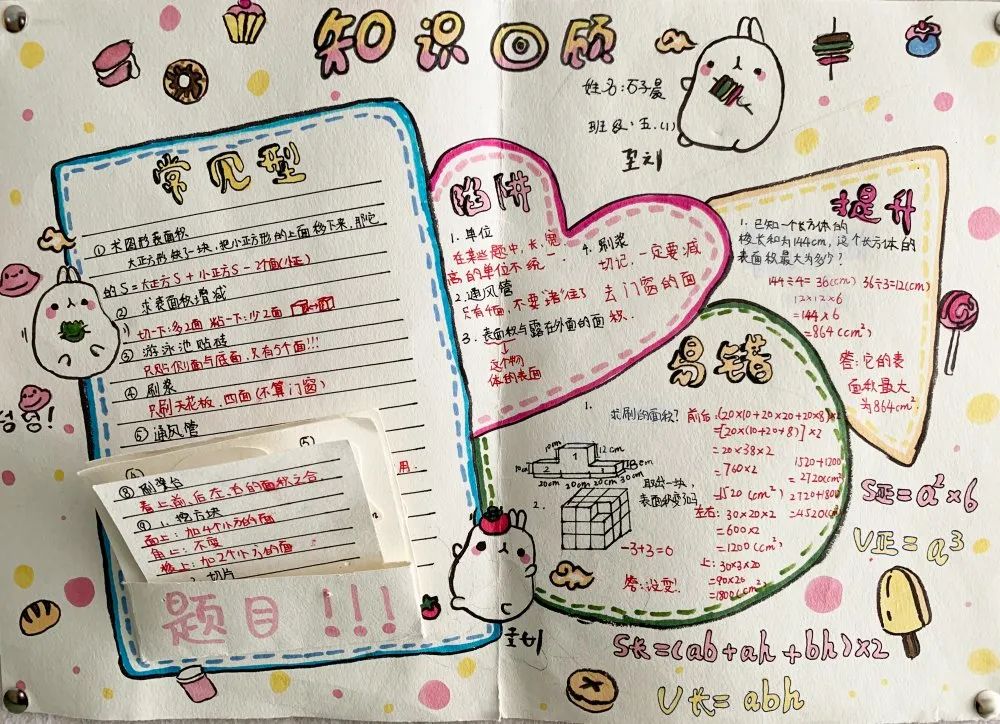 知识回顾
姓名:石子晨
班级:五.(1)
常见型
① 求图形表面积
大正方形缺了一块,把小正方形的上面移下来,那它
的S=大正方S+小正方S-2个面(小正)
② 求表面积增减
切一下:多2面 粘一下:少2面
③ 游泳池贴砖
只贴侧面与底面,只有5个面!!!
④ 刷浆
只刷天花板、四面(不算门窗)
⑤ 通风管
用.
⑧ 刷奖台
看上前,后左,右的面积之合.
⑨ 1. 挖方块
面上:加4个小方的面
角上:不变
棱上:加2个小方的面
2. 切片
题目!!!
陷阱
1. 单位
在某些题中,长,宽,
高的单位不统一.
2. 通风管
只有4面,不要"堵"住了
3. 表面积与露在外面的面积.
↓
这个物
体的表面
4. 刷浆
切记,一定要减
去门窗的面
提升
1. 已知一个长方体的
棱长和为144cm,这个长方体的
表面积最大为多少?
144÷4=36(cm) 36÷3=12(cm)
12×12×6
=144×6
=864(cm²)
答:它的表
面积最大
为864cm²
易错
1. 求刷的面积?
前后:(20×10+20×20+20×8)×2
=[20×(10+20+8)]×2
=20×38×2
=760×2
=1520(cm²)
左右:30×20×2
=600×2
=1200(cm²)
上:30×3×20
=90×20
=1800(cm²)
1520+1200
=2720(cm²)
2720+1800
=4520(cm²)
1
2
3
12cm
10cm
18cm
20cm 20cm 20cm 30cm
2. 取出一块,
表面积变了吗
-3+3=0
答:没变.
S正=a²×6
V正=a³
S长=(ab+ah+bh)×2
V长=abh